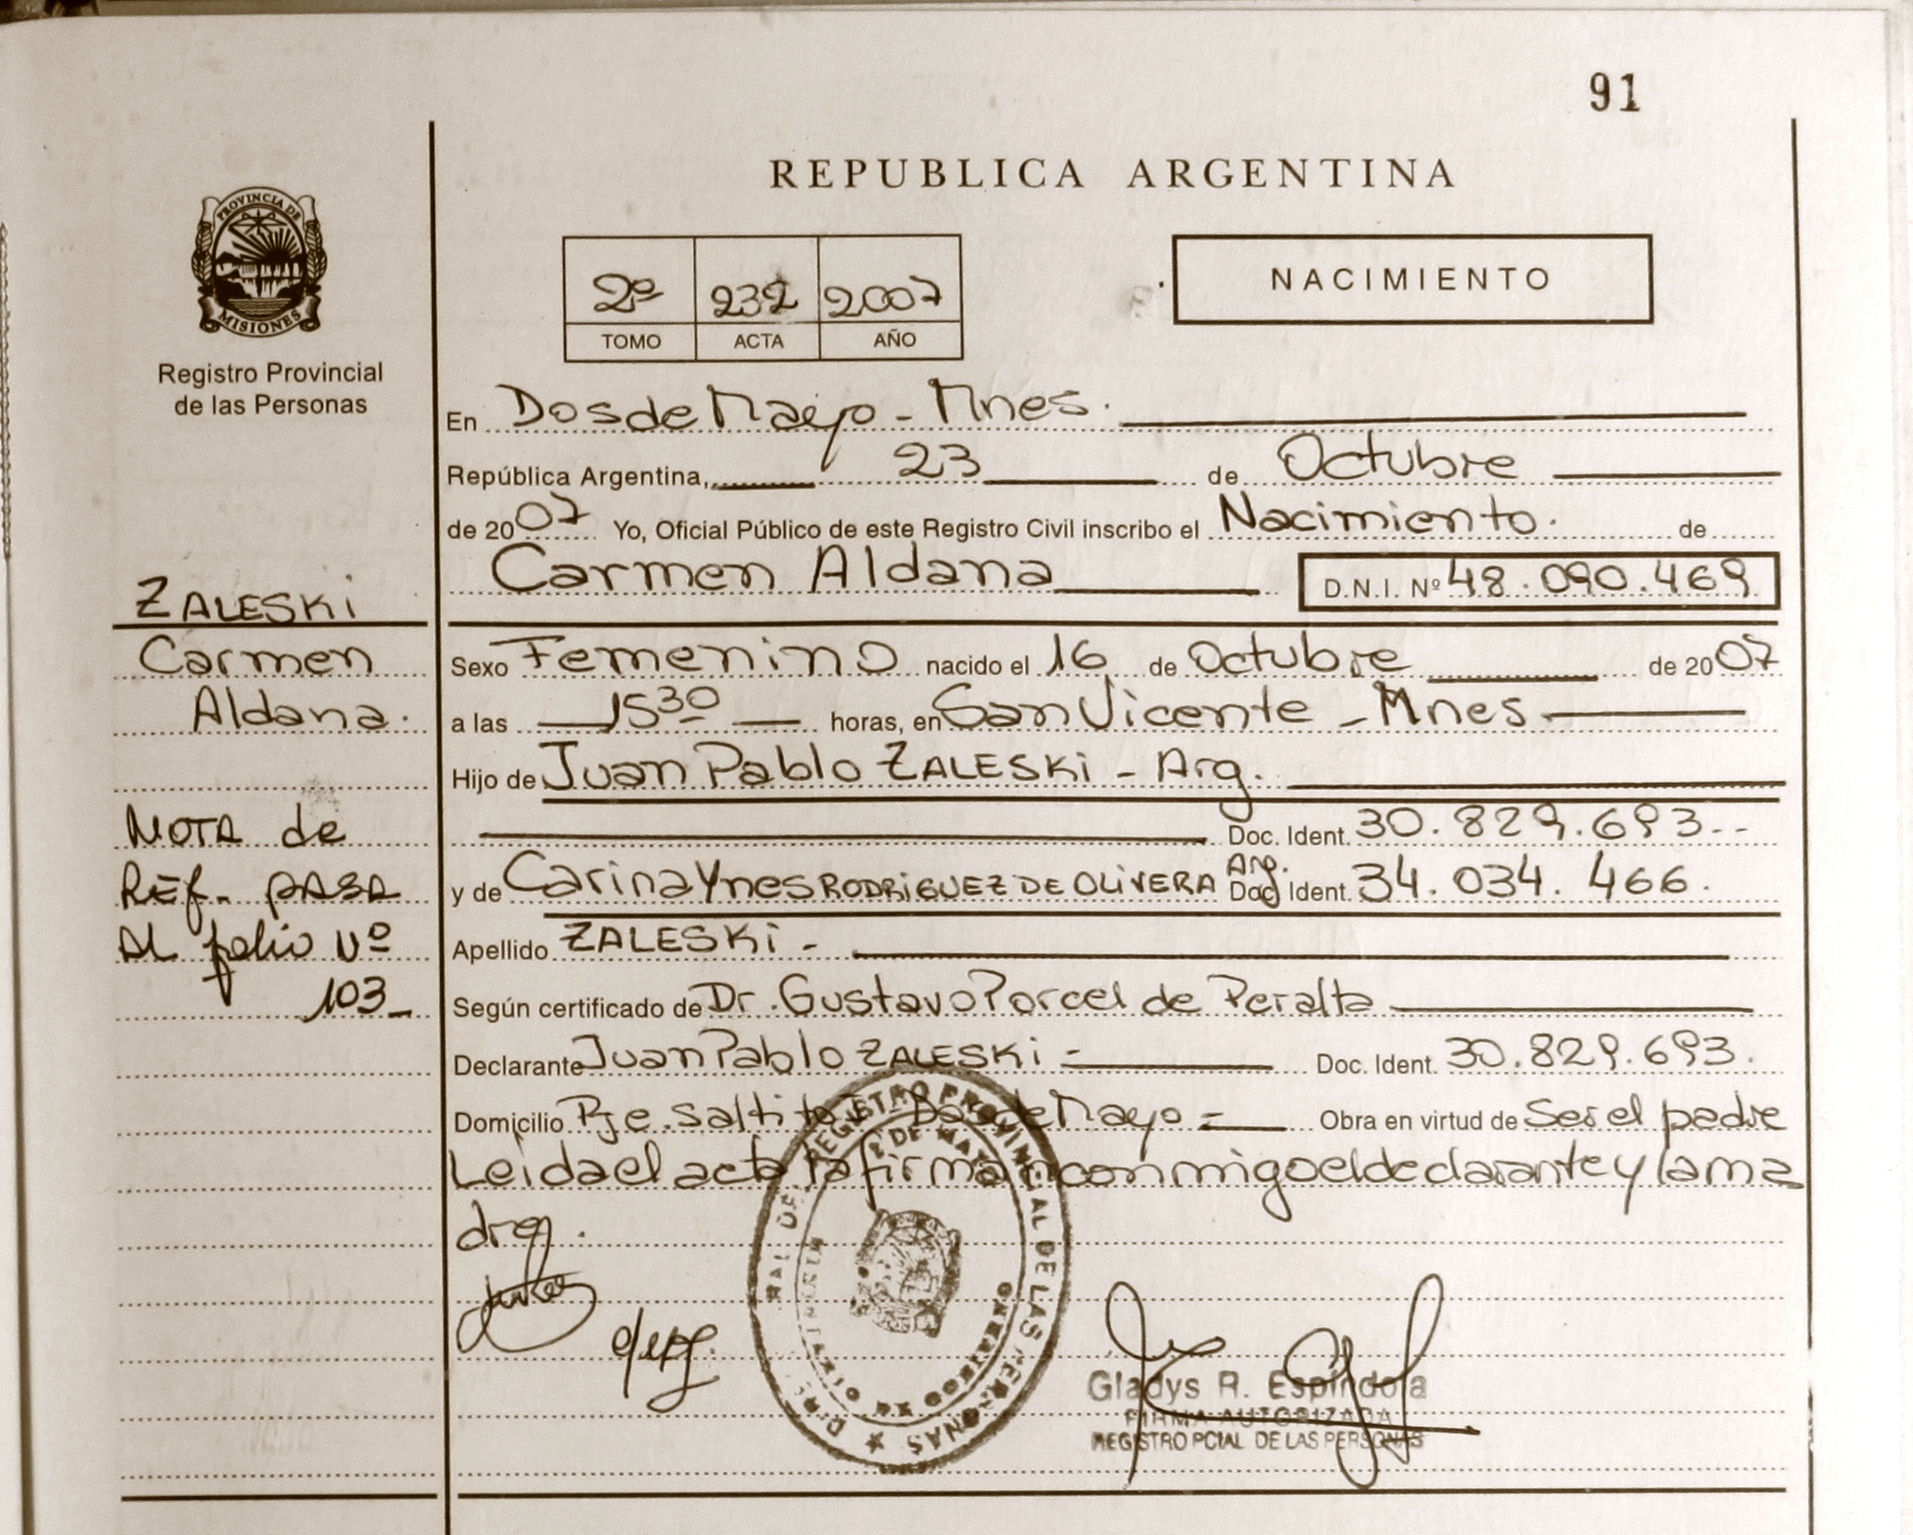 91
REPUBLICA ARGENTINA
PROVINCIA DE
MISIONES
Registro Provincial
de las Personas
2º 232 2007
TOMO ACTA AÑO
NACIMIENTO
En Dos de Mayo - Mnes.
República Argentina, 23 de Octubre
de 2007 Yo, Oficial Público de este Registro Civil inscribo el Nacimiento. de
Carmen Aldana D.N.I. Nº 48.090.469
ZALESKi
Carmen
Aldana.
Sexo Femenino nacido el 16 de Octubre de 2007
a las 15 30 horas, en San Vicente - Mnes
Hijo de Juan Pablo ZALESKi - Arg.
Doc. Ident. 30.829.693--
y de Carina Ynes RODRiGUEZ DE OLiVERA Arg. Doc. Ident. 34.034.466.
NOTA de
REf. PASA
AL folio Nº
103_
Apellido ZALESKi -
Según certificado de Dr. Gustavo Porcel de Peralta
Declarante Juan Pablo ZALESKi = Doc. Ident. 30.829.693.
Domicilio Pje. Saltito I - Dos de Mayo = Obra en virtud de Ser el padre
Leida el acta la firman conmigo el declarante y la ma
dre.
REGISTRO PROVINCIAL DE LAS PERSONAS
2 DE MAYO
Gladys R. Espindola
FIRMA AUTORIZADA
REGISTRO PCIAL DE LAS PERSONAS